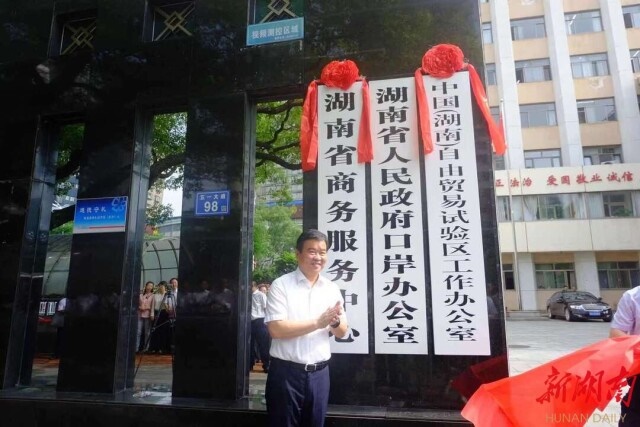 湖南省商务服务中心
湖南省人民政府口岸办公室
中国(湖南)自由贸易试验区工作办公室
五一大道
98
法治 爱国 敬业 诚信
新湖南
HUNAN DAILY